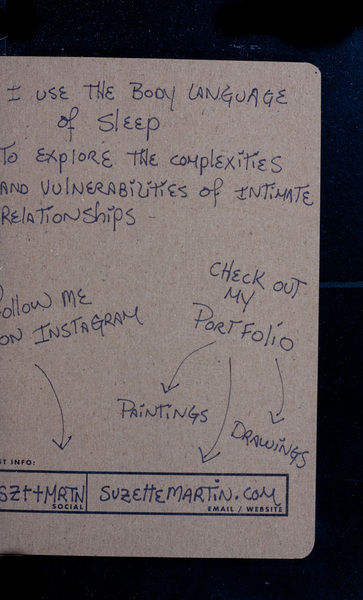 I USE THE BODY LANGUAGE
of Sleep
TO EXPLORE THE COMPLEXITIES
AND VULNERABILITIES of INTIMATE
RELATIONSHIPS -
CHECK OUT
MY
PORTFOLIO
FOLLOW ME
ON INSTAGRAM
PAINTINGS
DRAWINGS
ST INFO:
SZTTMRTN
SOCIAL
SUZETTEMARTIN.COM
EMAIL / WEBSITE